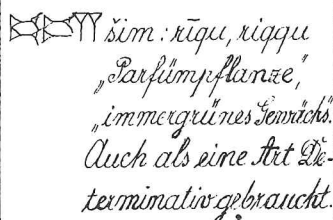 šim: rīqu, riqqu
„Parfümpflanze“,
„immergrünes Gewächs“.
Auch als eine Art De-
terminativ gebraucht.